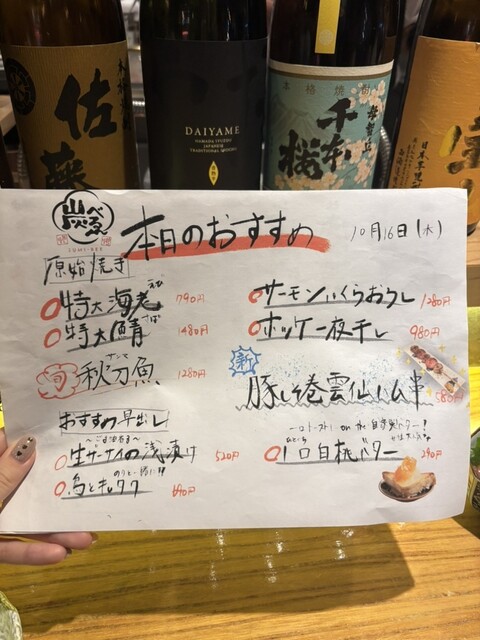 佐藤
DAIYAME
HAMADA SYUZOU
JAPANESE
TRADITIONAL
本格焼酎
千本桜
炭べる
SUMI-BER
本日のおすすめ
10月16日(水)
原始焼き
特大海老 790円
えび
特大鯖 1480円
さば
旬 秋刀魚 1280円
サンマ
サーモンいくらおろし 1280円
ホッケ一夜干し 980円
新
豚しそ巻雲仙ハム串 580円
おすすめ早出し
生ザーサイの浅漬け 520円
のりと一緒に!!
鳥とキムタク 490円
一口白桃バター 290円
ひとくち